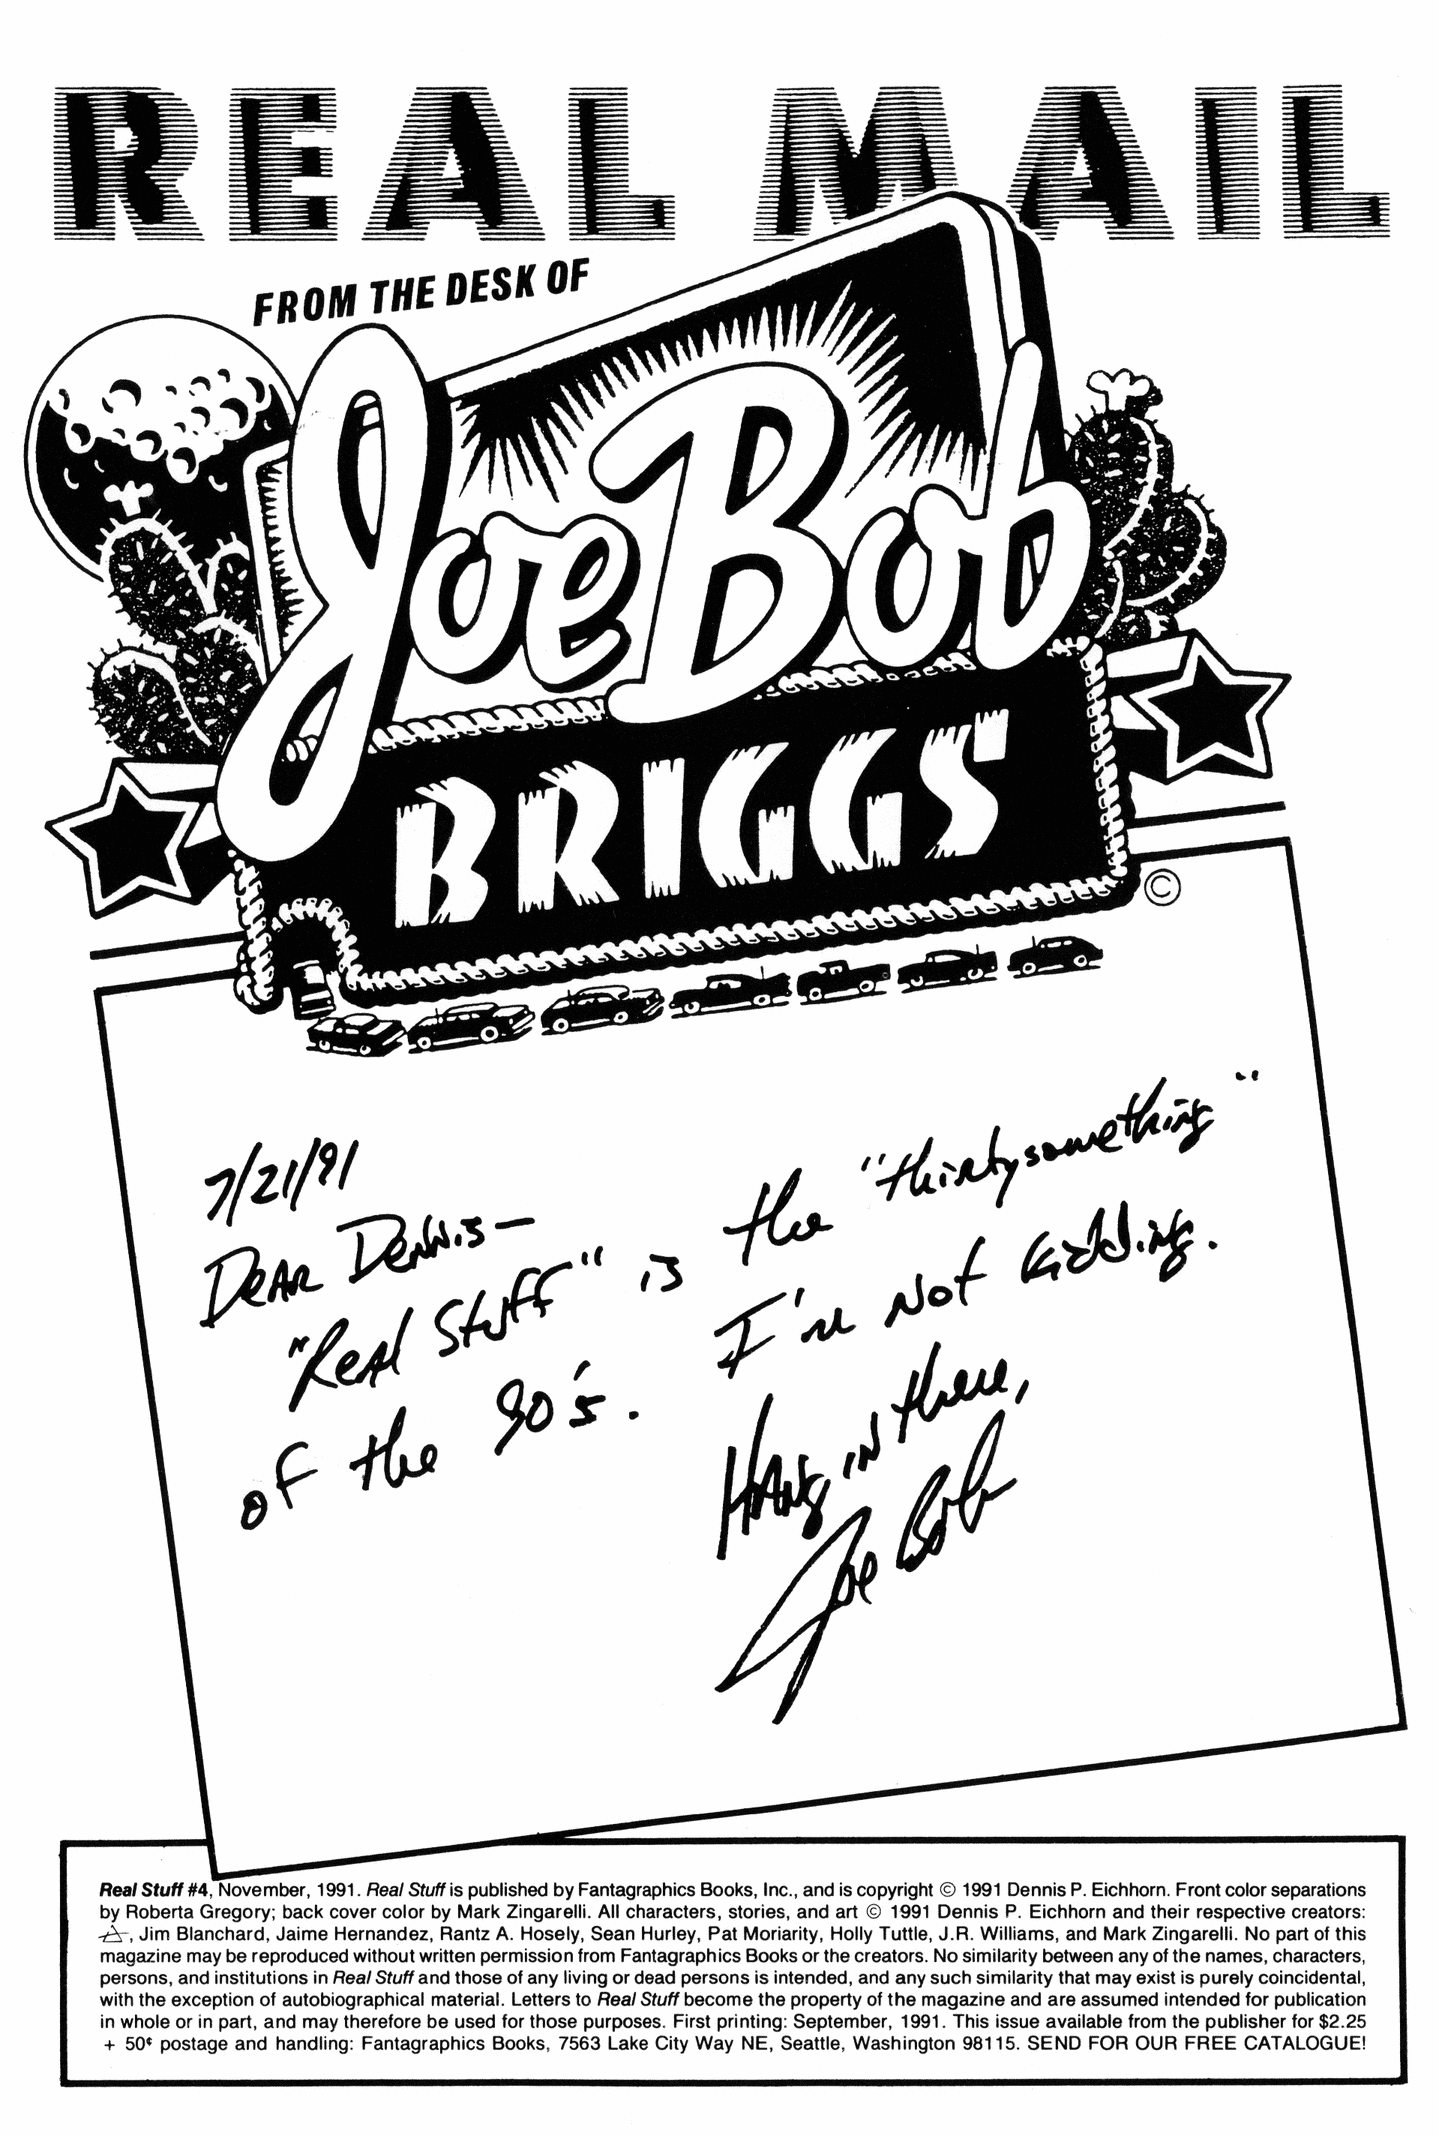 REAL MAIL
FROM THE DESK OF
Joe Bob
BRIGGS
©
7/21/91
Dear Dennis—
"Real Stuff" is the "thirtysomething"
of the 90's. I'm not kidding.
Hang in there,
Joe Bob
Real Stuff #4, November, 1991. Real Stuff is published by Fantagraphics Books, Inc., and is copyright © 1991 Dennis P. Eichhorn. Front color separations
by Roberta Gregory; back cover color by Mark Zingarelli. All characters, stories, and art © 1991 Dennis P. Eichhorn and their respective creators:
, Jim Blanchard, Jaime Hernandez, Rantz A. Hosely, Sean Hurley, Pat Moriarity, Holly Tuttle, J.R. Williams, and Mark Zingarelli. No part of this
magazine may be reproduced without written permission from Fantagraphics Books or the creators. No similarity between any of the names, characters,
persons, and institutions in Real Stuff and those of any living or dead persons is intended, and any such similarity that may exist is purely coincidental,
with the exception of autobiographical material. Letters to Real Stuff become the property of the magazine and are assumed intended for publication
in whole or in part, and may therefore be used for those purposes. First printing: September, 1991. This issue available from the publisher for $2.25
+ 50¢ postage and handling: Fantagraphics Books, 7563 Lake City Way NE, Seattle, Washington 98115. SEND FOR OUR FREE CATALOGUE!